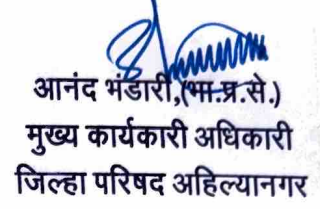 आनंद भंडारी,(भा.प्र.से.)
मुख्य कार्यकारी अधिकारी
जिल्हा परिषद अहिल्यानगर